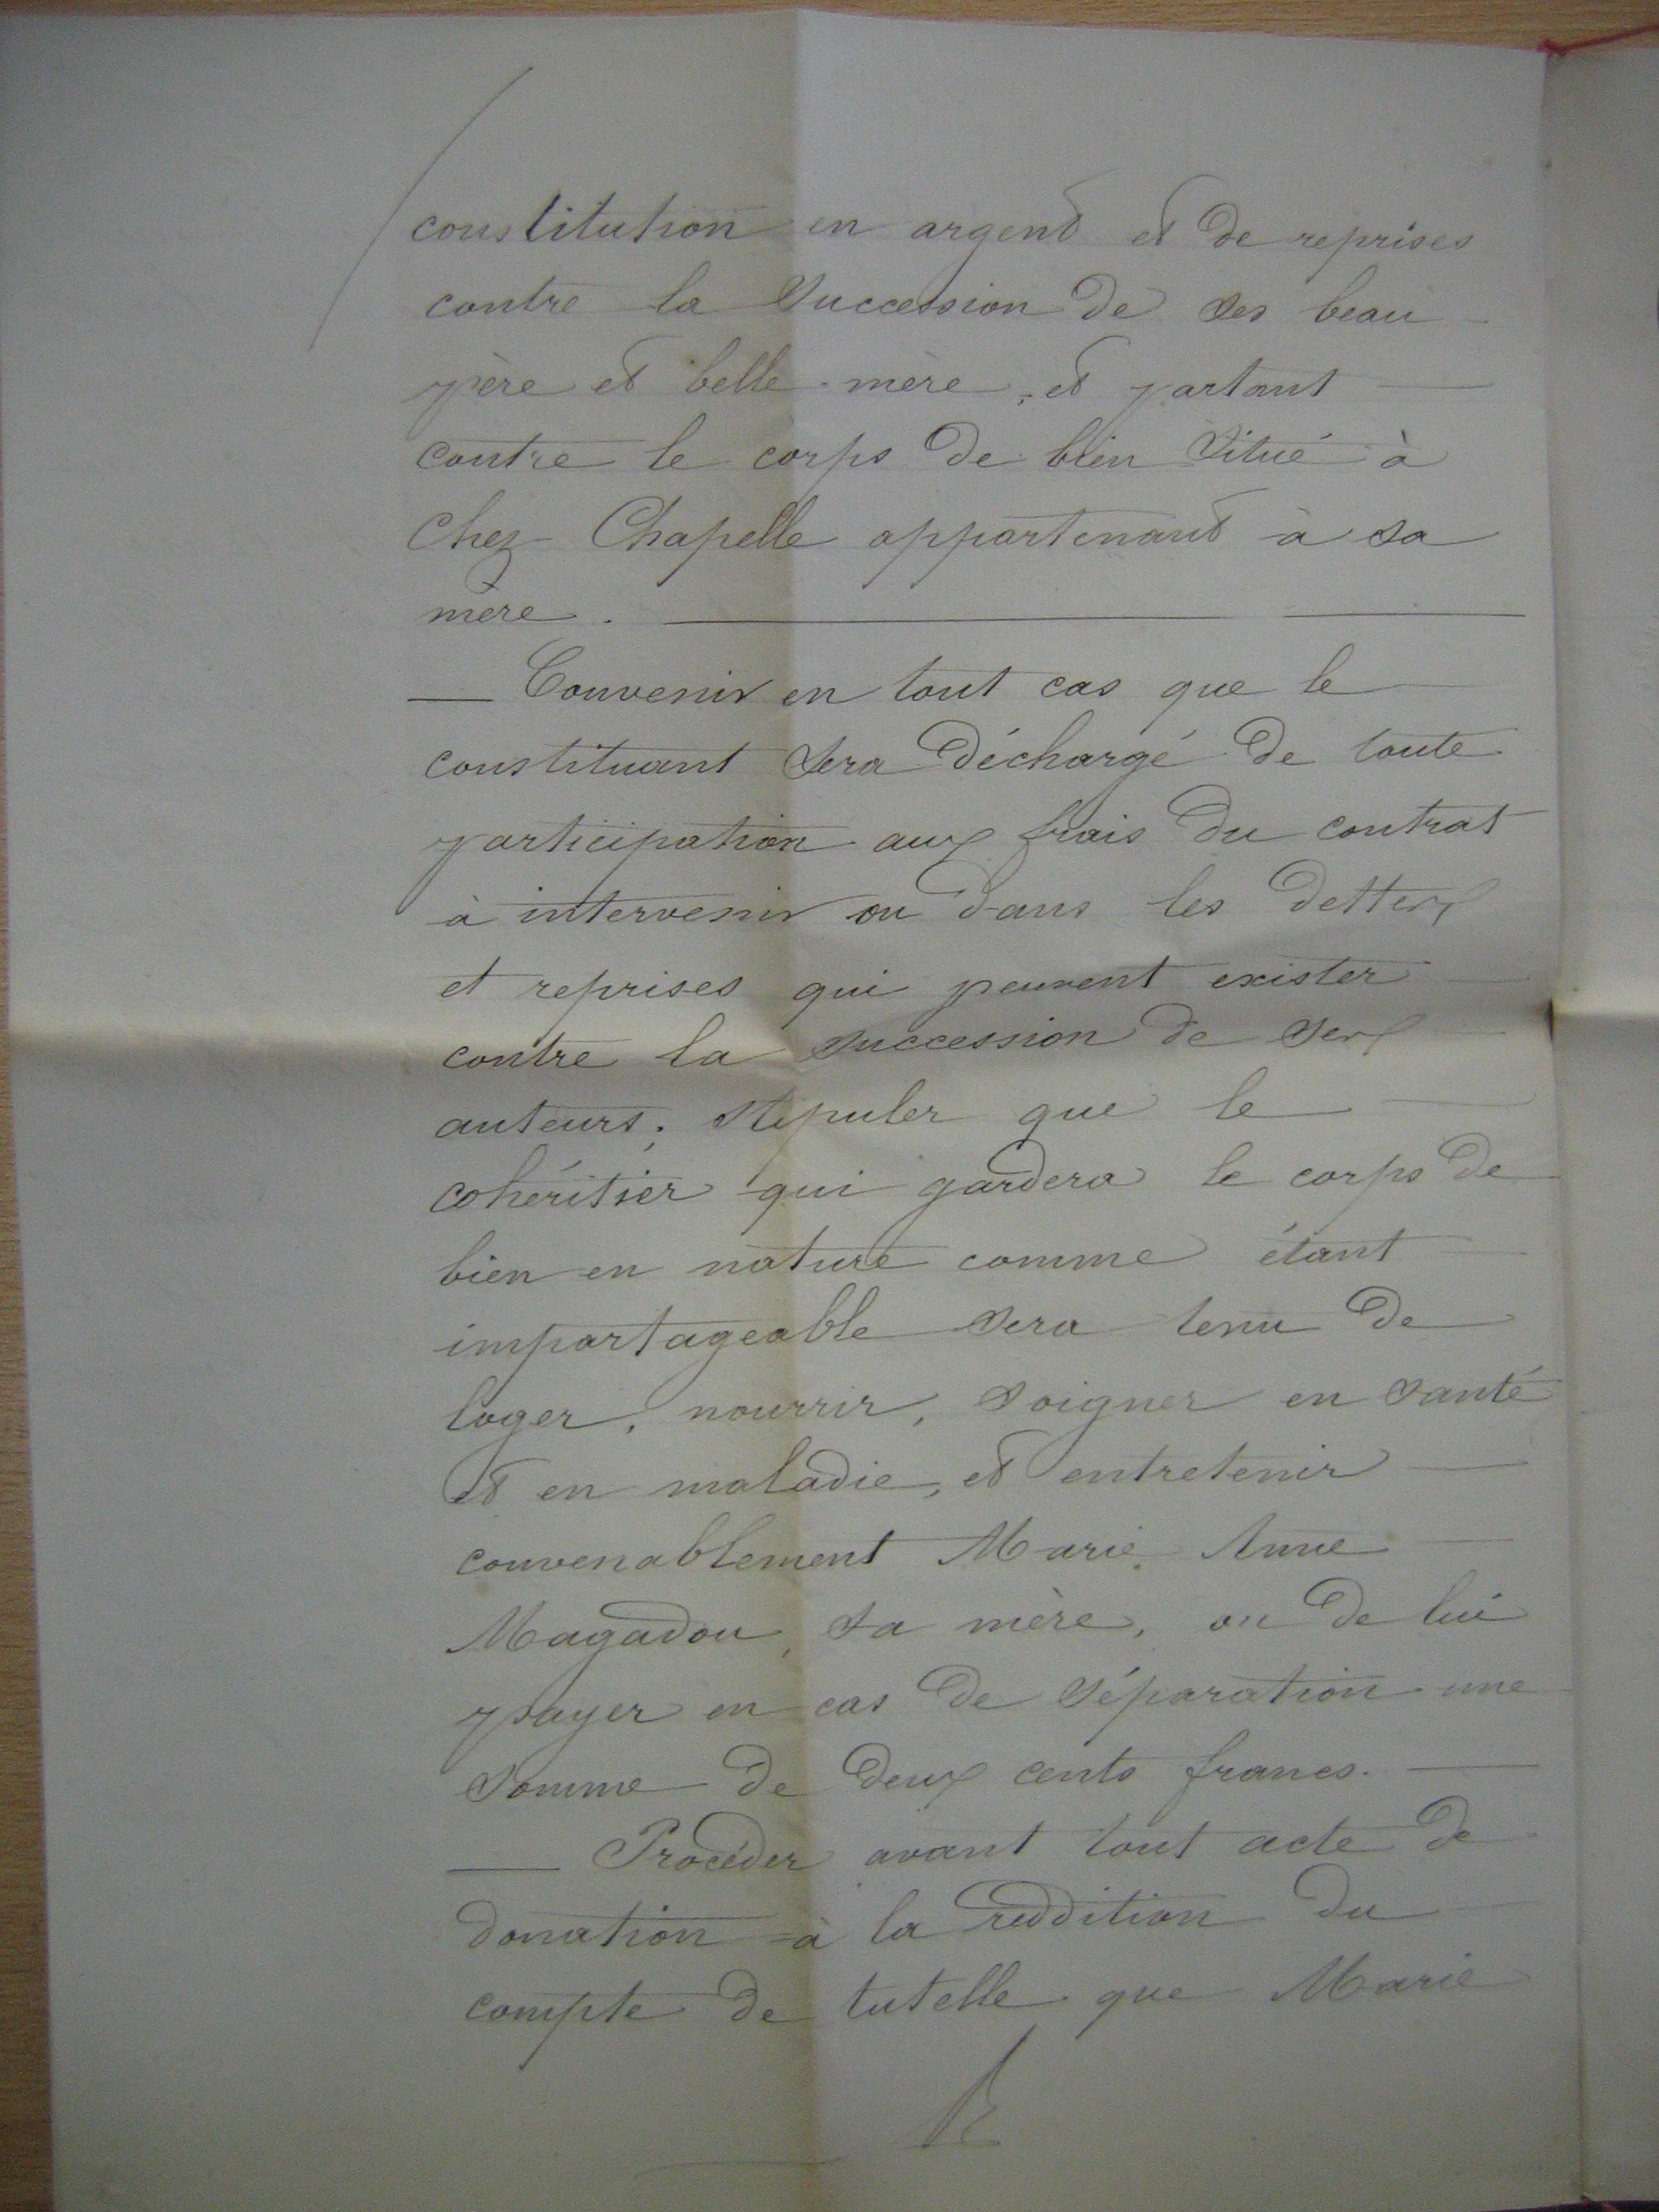 constitution en argent et de reprises
contre la succession de ses beau
père et belle-mère, et partant
contre le corps de bien situé à
Chez Chapelle appartenant à sa
mère.
— Convenir en tout cas que le
constituant sera déchargé de toute
participation aux frais du contrat
à intervenir ou dans les dettes
et reprises qui peuvent exister
contre la succession de ses
auteurs; stipuler que le
cohéritier qui gardera le corps de
bien en nature comme étant
impartageable sera tenu de
loger, nourrir, soigner en santé
et en maladie, et entretenir
convenablement Marie Anne
Magadou, sa mère, ou de lui
payer en cas de séparation une
somme de deux cents francs.
— Procéder avant tout acte de
donation à la reddition du
compte de tutelle que Marie